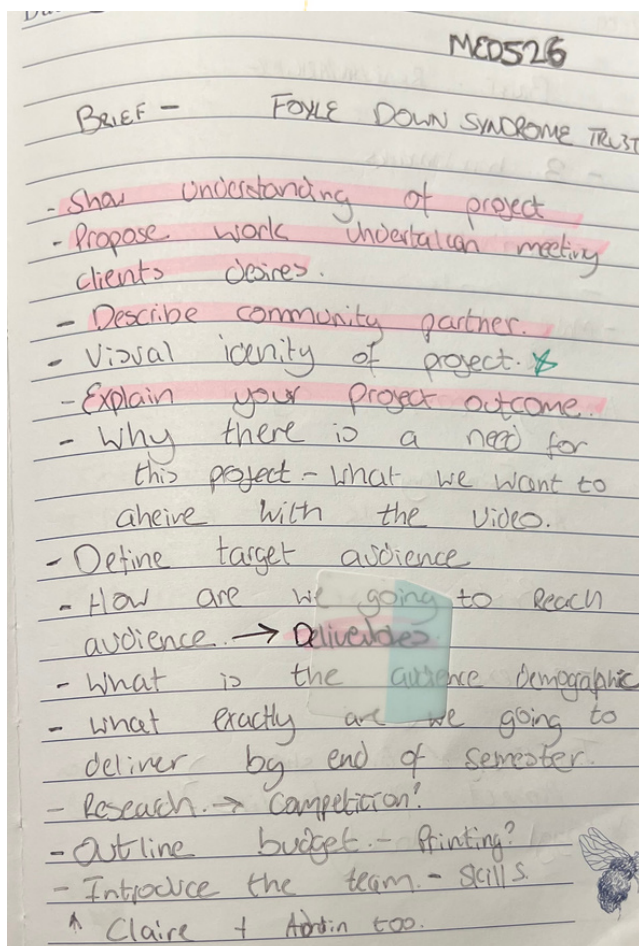 MED526
BRIEF - FOYLE DOWN SYNDROME TRUST
- Show understanding of project
- Propose work undertakan meeting
clients desires.
- Describe community partner.
- Visual idenity of project.
- Explain your project outcome.
- Why there is a need for
this project - what we want to
aheive with the video.
- Define target audience
- How are we going to reach
audience. → Deliverables.
- What is the audience demographic
- What exactly are we going to
deliver by end of semester.
- Reseach. → Competition?
- Outline budget. - Printing?
- Introduce the team. - Skills.
↑ Claire + too.